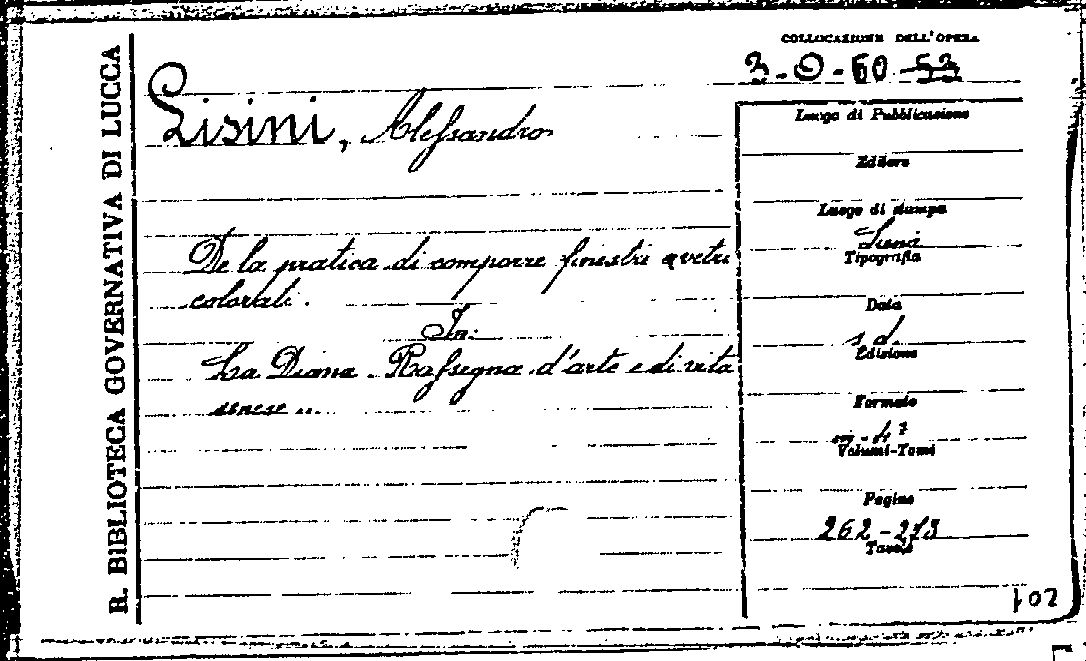 R. BIBLIOTECA GOVERNATIVA DI LUCCA
COLLOCAZIONE DELL'OPERA
3-O-60-53
Lisini, Alessandro
De la pratica di comporre finestri a vetri
colorati.
In:
La Diana. Rassegna d'arte e di vita
senese...
Luogo di Pubblicazione
Editore
Luogo di stampa
Siena
Tipografia
Data
s. d.
Edizione
Formato
Volumi-Tomi
Pagine
262-273
Tavole
102